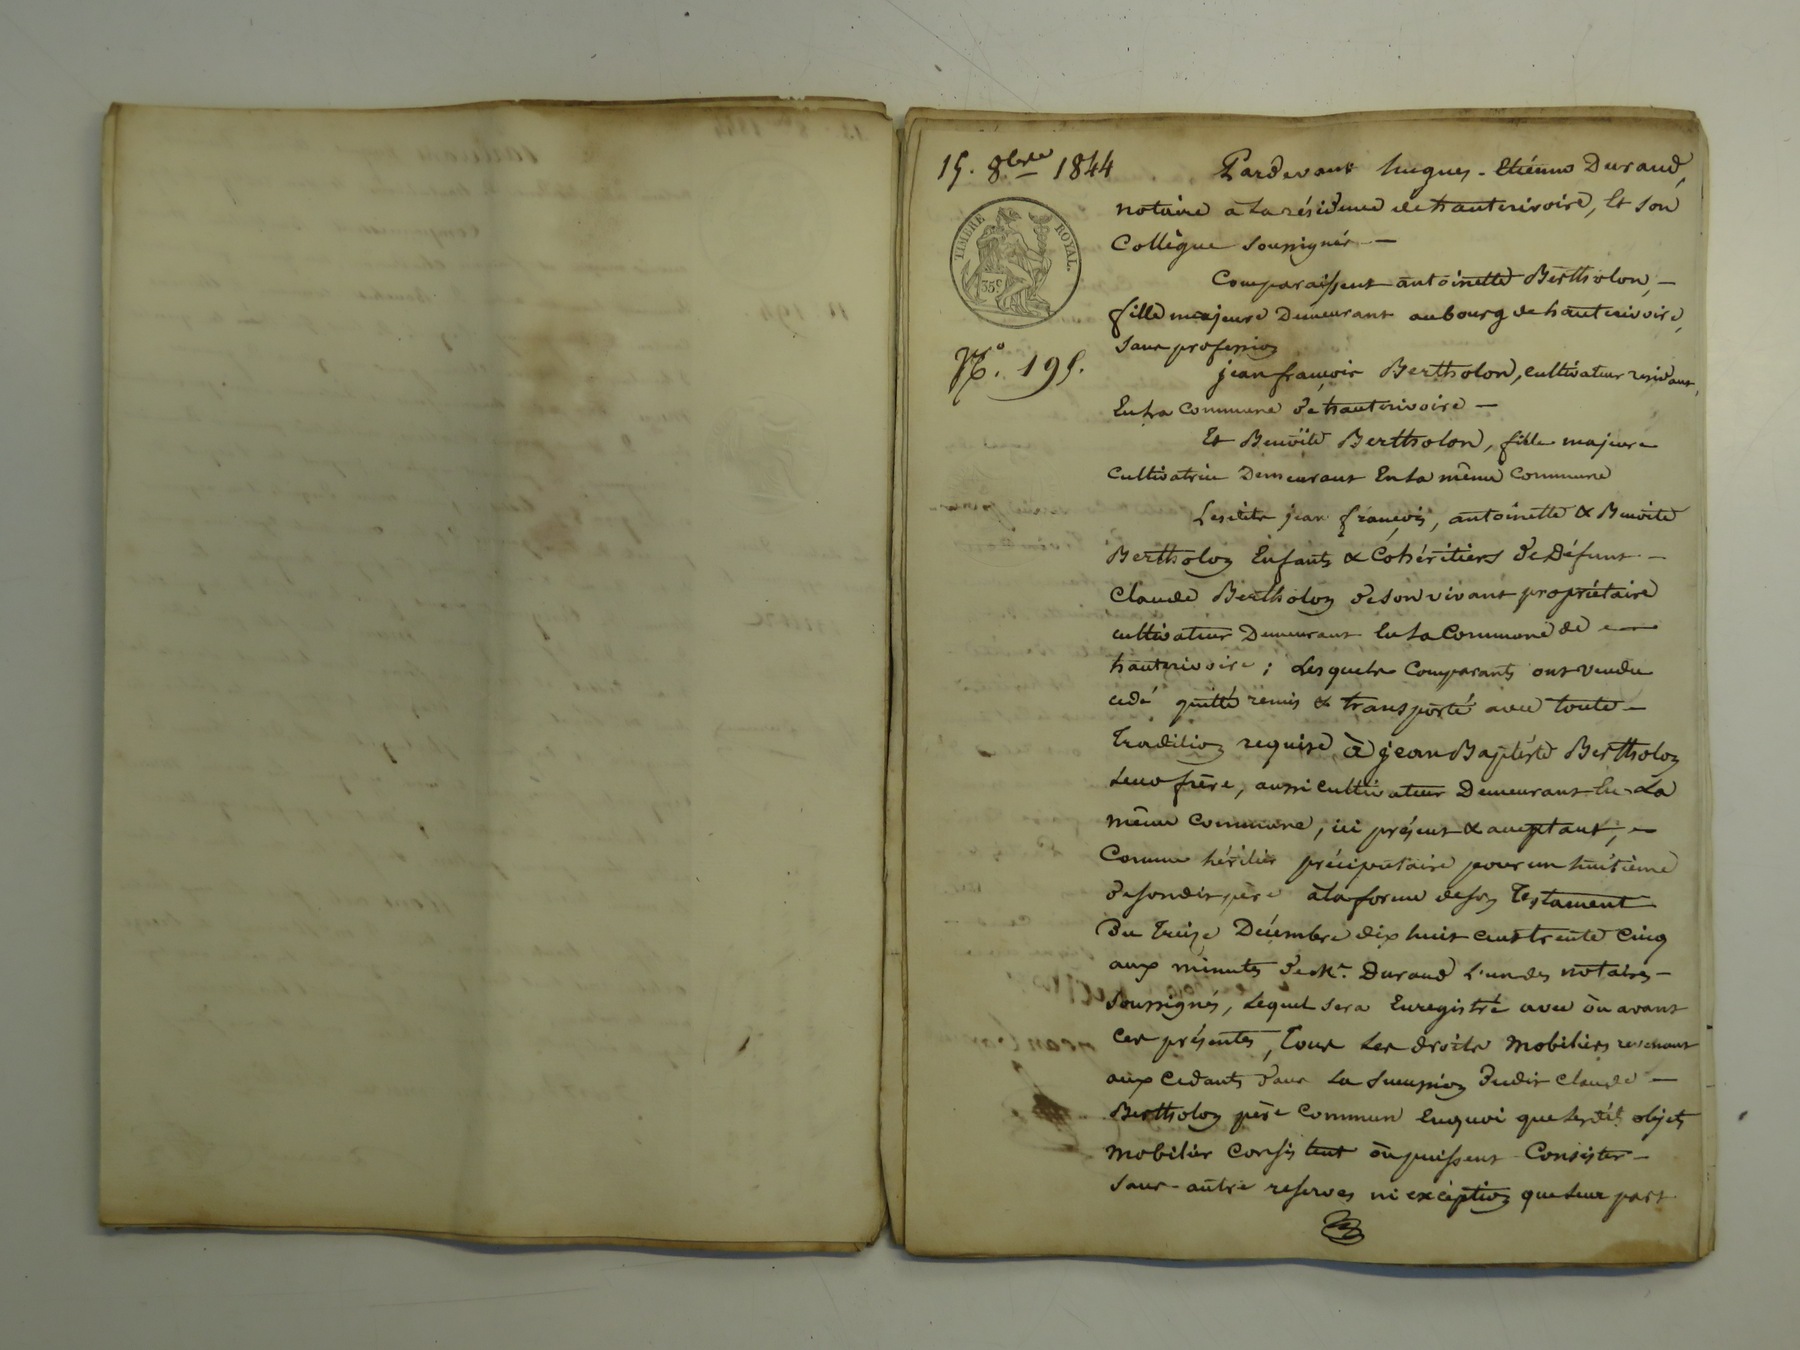 15. 8bre 1844
TIMBRE ROYAL.
35c
No. 195.
Pardevant hugues-Etiénne Durand,
notaire à La résidence de hauterivoire, Et son
Collègue soussignés —
Comparaissent antoinette Bertholon, —
fille majeure Demeurant au bourg de hauterivoire,
sans profession
jean françois Bertholon, cultivateur residant,
En La Commune de hauterivoire —
Et Benoîte Bertholon, fille majeure
Cultivatrice Demeurant En La même Commune
Lesdits jean françois, antoinette & Benoite
Bertholon Enfants & Cohéritiers De Défunt —
Claude Bertholon de son vivant propriétaire
cultivateur Demeurant En La Commune de —
hauterivoire ; Lesquels Comparants ont vendu
cédé quitté remis & transporté avec toute —
Tradition requise à jean Baptiste Bertholon
Leur frère, aussi cultivateur Demeurant En La
même Commune, ici présent & acceptant, —
Comme héritier préciputaire pour un huitième
de son dit père à la forme de son Testament
Du Treize Décembre dix huit cent trente Cinq
aux minutes de Me. Durand L'un des notaires —
soussignés, Lequel sera Enregistré avec ou avant
Ces présentes, Tous Les droits Mobiliers revenant
aux Cédants dans La succession dudit Claude —
Bertholon père Commun En quoi que Lesdits objets
Mobilier Consistent ou puissent Consister —
sans autre reserves ni exception que Leur part